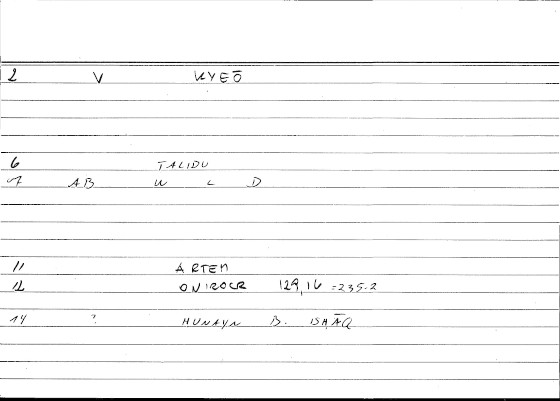 2 V KYEŌ
6 TALIDU
7 AB W L D
11 ARTEM
12 ONIROCR 129,16 =235.2
14 ? HUNAYN B. ISḤĀQ